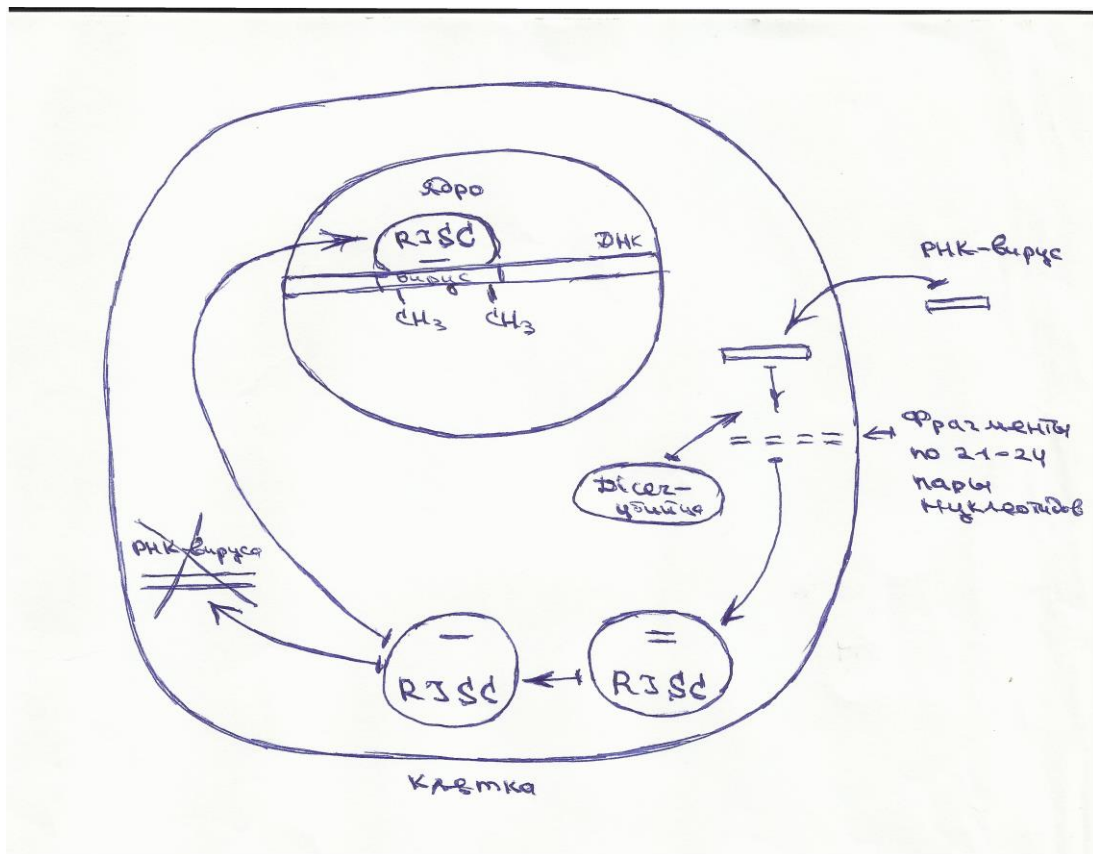 Ядро
RISC
ДНК
вирус
CH3 CH3
РНК-вирус
Фрагменты
по 21-24
пары
нуклеотидов
Dicer-
убийца
РНК-вируса
RISC
RISC
Клетка